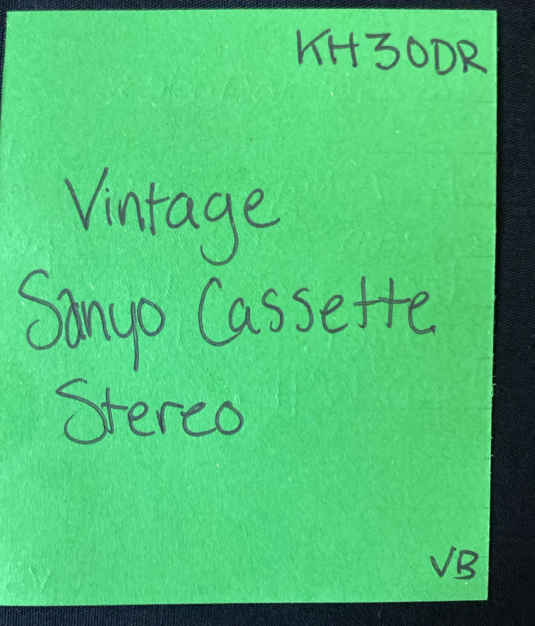 KH30DR
Vintage
Sanyo Cassette
Stereo
VB